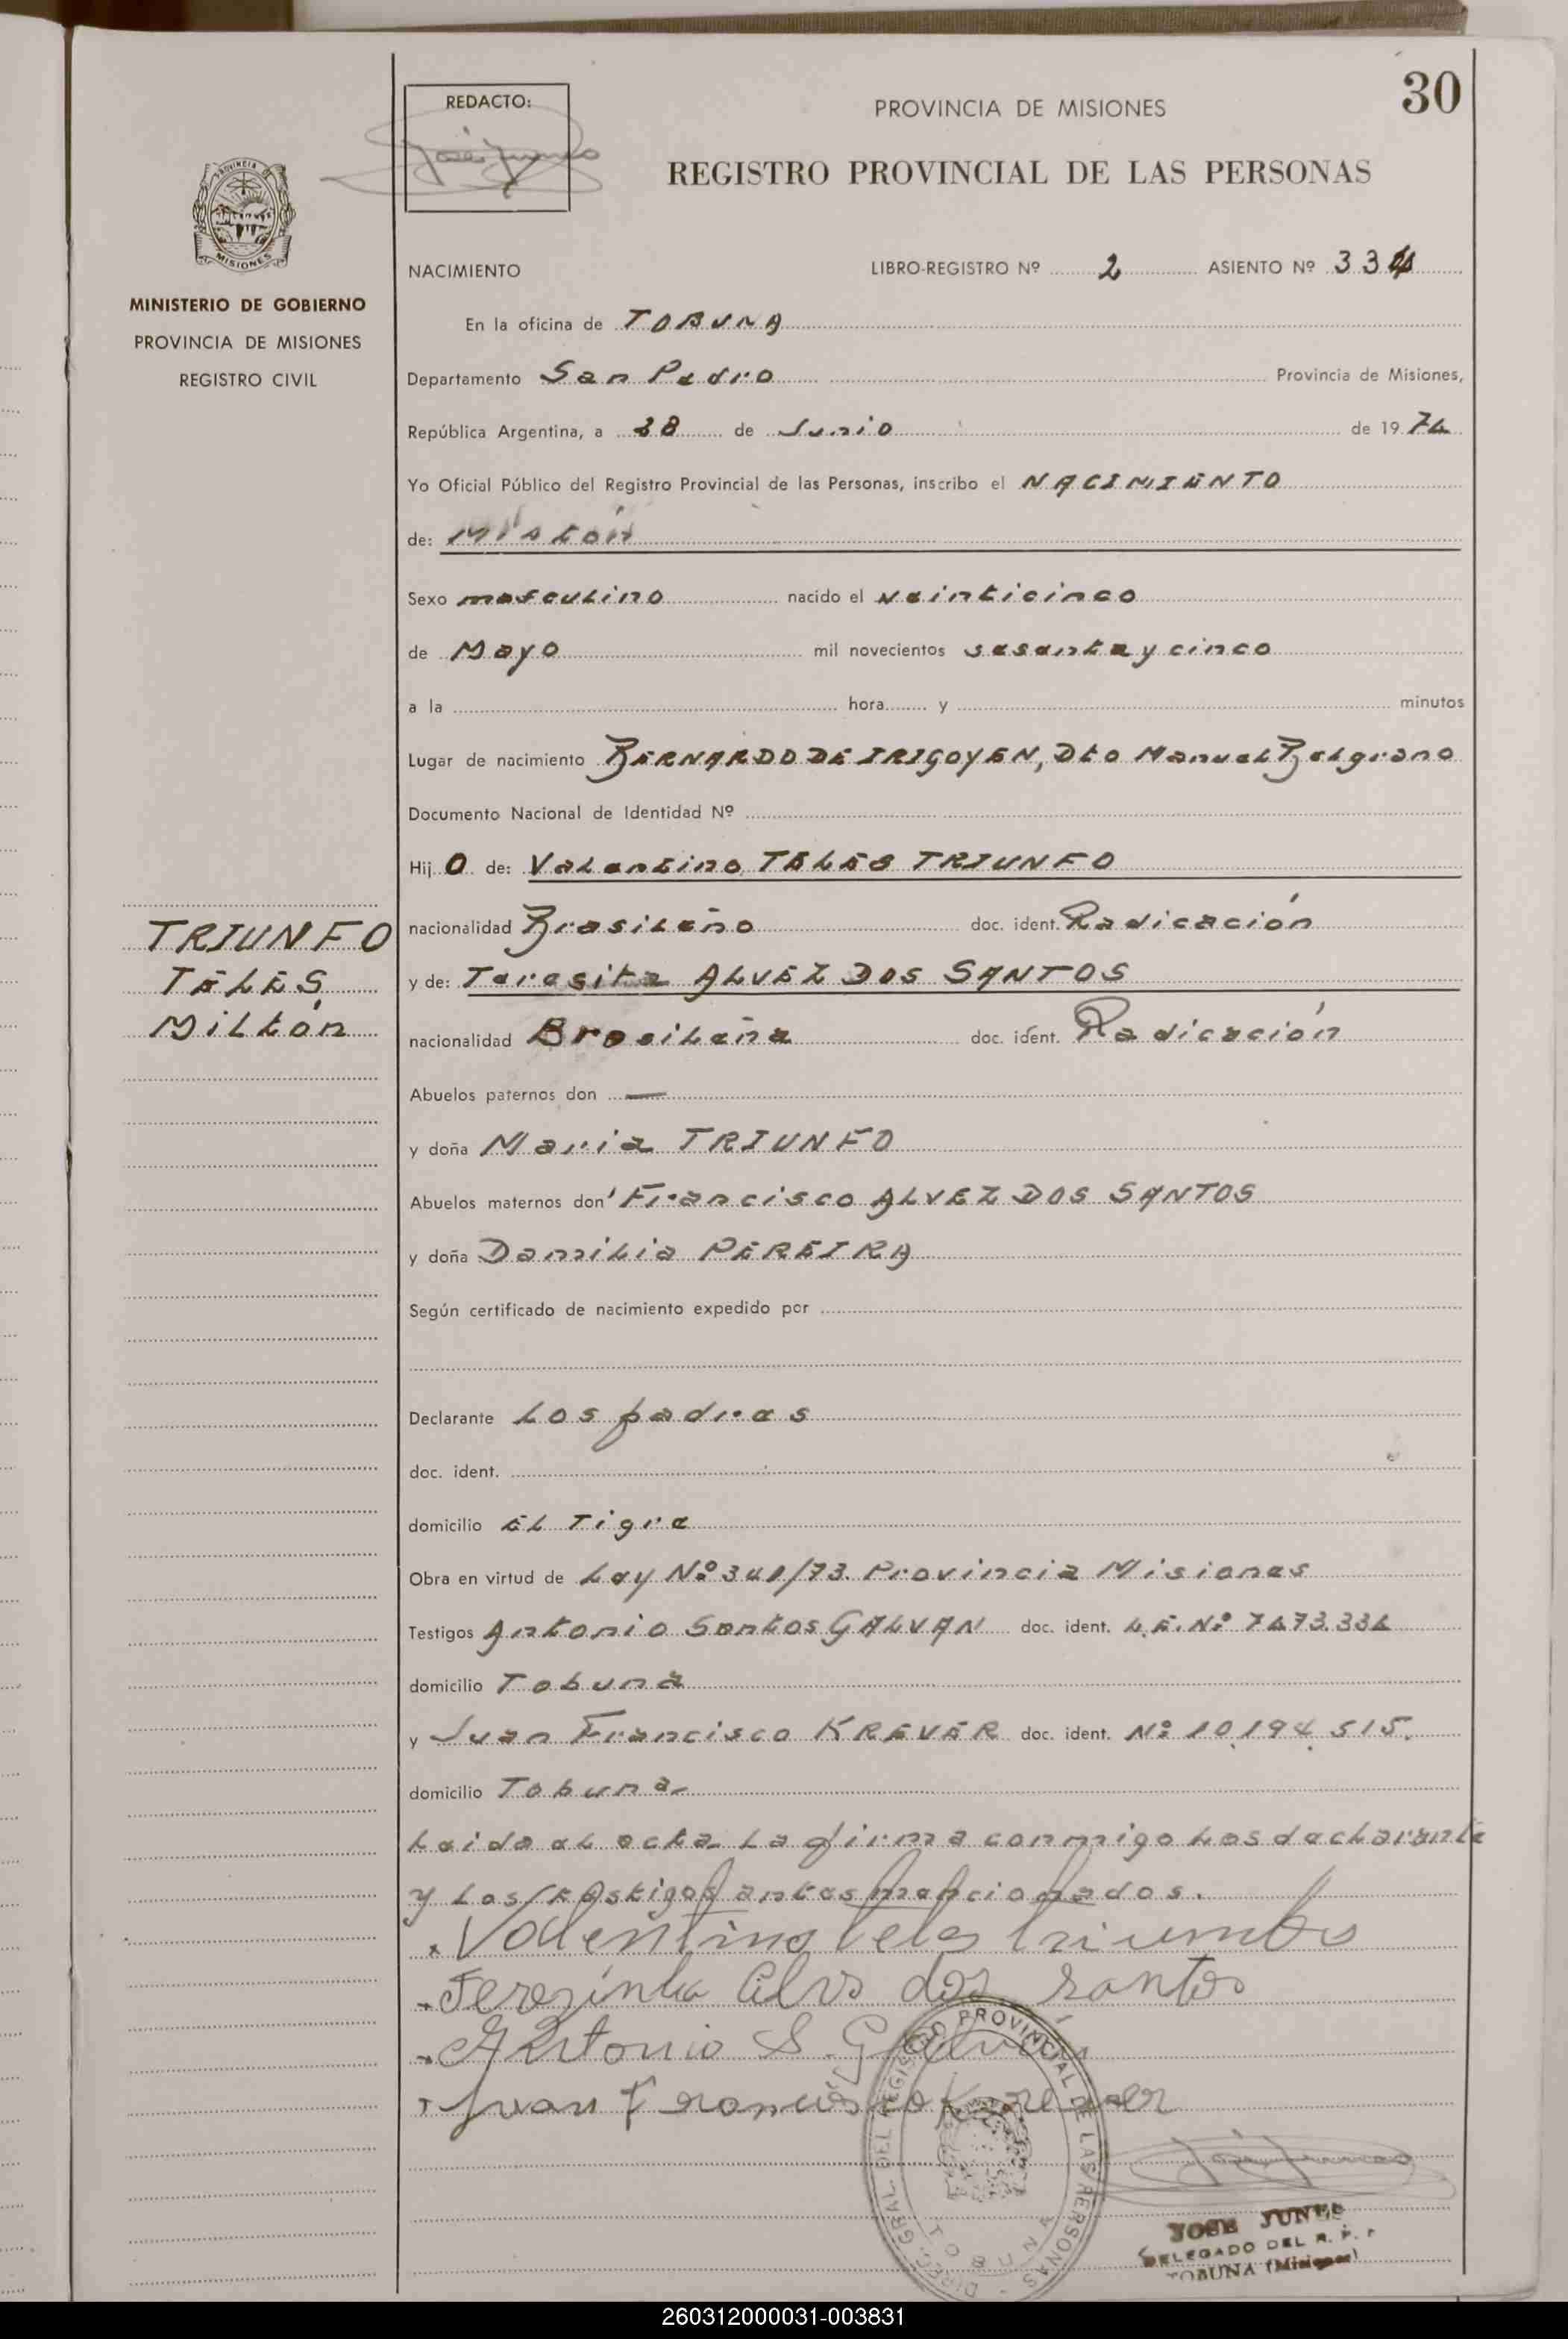 30
REDACTO:
PROVINCIA DE MISIONES
REGISTRO PROVINCIAL DE LAS PERSONAS
MISIONES
MINISTERIO DE GOBIERNO
PROVINCIA DE MISIONES
REGISTRO CIVIL
NACIMIENTO LIBRO-REGISTRO Nº 2 ASIENTO Nº 334
En la oficina de TOBUNA
Departamento San Pedro Provincia de Misiones,
República Argentina, a 28 de Junio de 1974
Yo Oficial Público del Registro Provincial de las Personas, inscribo el NACIMIENTO
de: Miltón
Sexo masculino nacido el veinticinco
de Mayo mil novecientos sesenta y cinco
a la hora y minutos
Lugar de nacimiento BERNARDO DE IRIGOYEN, Dto Manuel Belgrano
Documento Nacional de Identidad Nº
Hij O de: Valentino TELES TRIUNFO
nacionalidad Brasileño doc. ident. Radicación
y de: Teresita ALVEZ DOS SANTOS
nacionalidad Brasileña doc. ident. Radicación
TRIUNFO
TELES,
Miltón
Abuelos paternos don —
y doña Maria TRIUNFO
Abuelos maternos don Francisco ALVEZ DOS SANTOS
y doña Damilia PEREIRA
Según certificado de nacimiento expedido por
Declarante Los padres
doc. ident.
domicilio EL Tigre
Obra en virtud de Ley Nº 341/73. Provincia Misiones
Testigos Antonio Santos GALVAN doc. ident. L.E. Nº 7473.334
domicilio Tobuna
y Juan Francisco KREVER doc. ident. Nº 10.194.515.
domicilio Tobuna
Leida el acta La firma conmigo Los declarante
y Los testigos antes mencionados.
Valentino Teles Triumfo
Terezinha Alvs dos santos
Antonio S. Galván
Juan Francisco Krever
DIREC. GRAL. DEL REGISTRO PROVINCIAL DE LAS PERSONAS
TOBUNA
JOSE JUNES
DELEGADO DEL R. P. P
TOBUNA (Misiones)
260312000031-003831